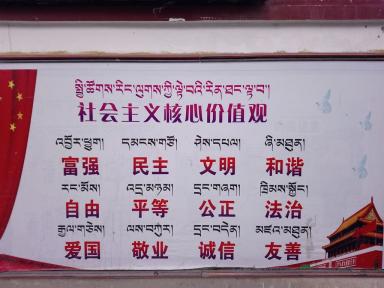 སྤྱི་ཚོགས་རིང་ལུགས་ཀྱི་ལྟེ་བའི་རིན་ཐང་ལྟ་བ།
社会主义核心价值观
འབྱོར་ཕྱུག། དམངས་གཙོ། ཤེས་དཔལ། ཞི་མཐུན།
富强 民主 文明 和谐
རང་མོས། འདྲ་མཉམ། དྲང་གཞག། ཁྲིམས་སྐྱོང་།
自由 平等 公正 法治
རྒྱལ་གཅེས། ལས་བཀུར། དྲང་བདེན། མཛའ་མཐུན།
爱国 敬业 诚信 友善